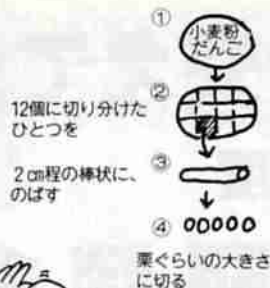 ①
小麦粉
だんご
②
12個に切り分けた
ひとつを
③
2cm程の棒状に、
のばす
④
粟ぐらいの大きさ
に切る